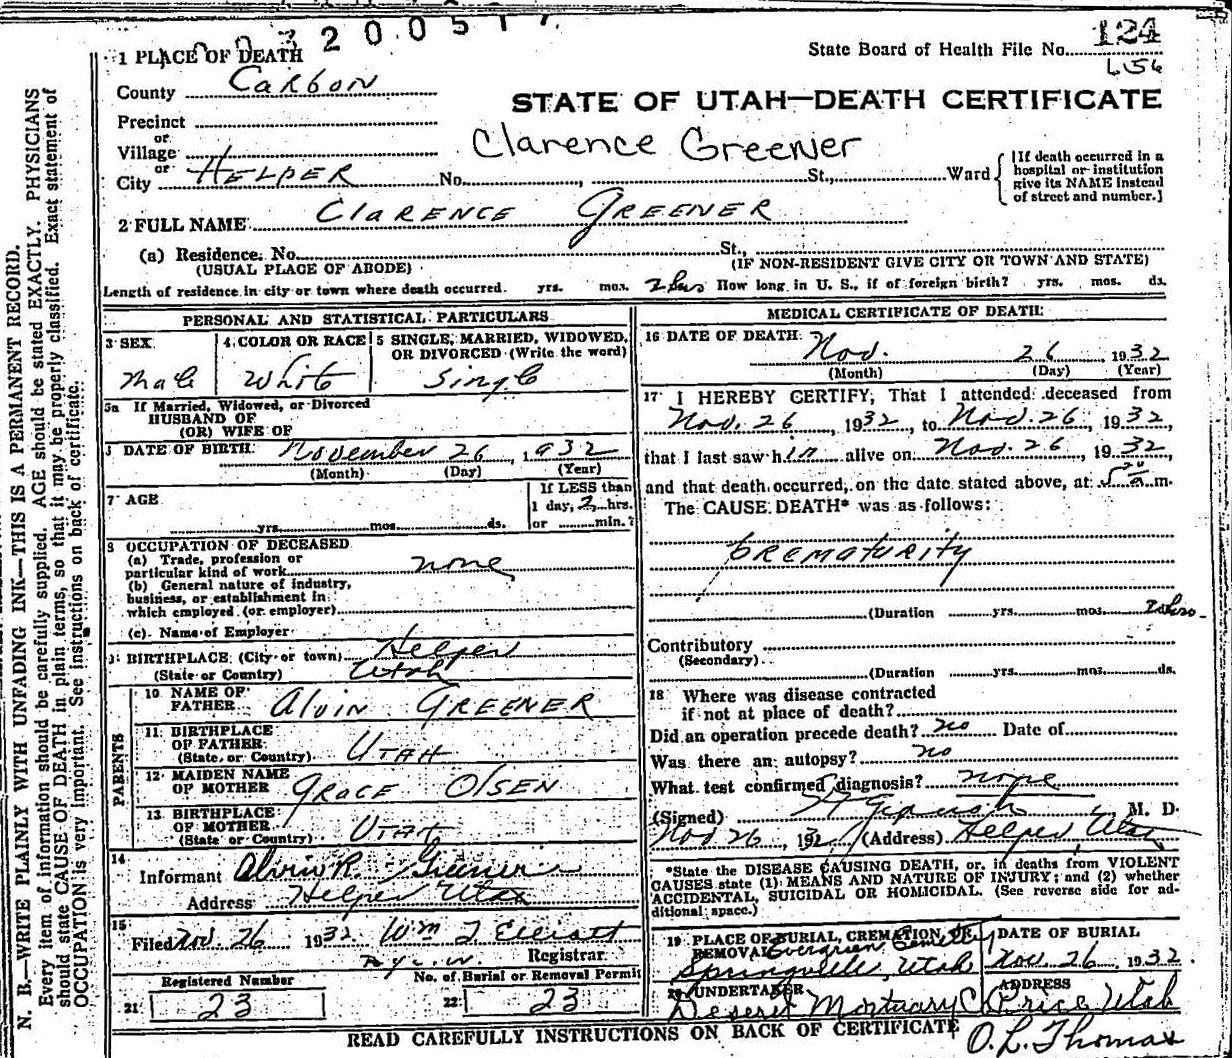 3 2 0 0 5 1 7
State Board of Health File No. 124
656
1 PLACE OF DEATH
County Carbon
STATE OF UTAH—DEATH CERTIFICATE
Precinct
or
Village
Clarence Greener
or
City HELPER No. , St., Ward
[If death occurred in a hospital or institution give its NAME instead of street and number.]
2 FULL NAME CLARENCE GREENER
(a) Residence. No. St.,
(USUAL PLACE OF ABODE) (IF NON-RESIDENT GIVE CITY OR TOWN AND STATE)
Length of residence in city or town where death occurred. yrs. mos. 2 hrs How long in U. S., if of foreign birth? yrs. mos. ds.
PERSONAL AND STATISTICAL PARTICULARS
3 SEX Male
4 COLOR OR RACE White
5 SINGLE, MARRIED, WIDOWED, OR DIVORCED (Write the word) Single
5a If Married, Widowed, or Divorced
HUSBAND OF
(OR) WIFE OF
DATE OF BIRTH November 26, 1932
(Month) (Day) (Year)
7 AGE yrs. mos. ds.
If LESS than
1 day, 2 hrs.
or min.?
8 OCCUPATION OF DECEASED
(a) Trade, profession or
particular kind of work none
(b) General nature of industry,
business, or establishment in
which employed (or employer)
(c) Name of Employer
9 BIRTHPLACE (City or town) Helper
(State or Country) Utah
PARENTS
10 NAME OF FATHER Alvin GREENER
11 BIRTHPLACE OF FATHER (State or Country) UTAH
12 MAIDEN NAME OF MOTHER GRACE OLSEN
13 BIRTHPLACE OF MOTHER (State or Country) UTAH
14 Informant Alvin R. Greener
Address Helper Utah
15 Filed Nov. 26 1932 Wm J Elliott
Registrar
Registered Number
No. of Burial or Removal Permit
21 23
22 23
MEDICAL CERTIFICATE OF DEATH
16 DATE OF DEATH Nov. 26 1932
(Month) (Day) (Year)
17 I HEREBY CERTIFY, That I attended deceased from
Nov. 26, 1932, to Nov. 26, 1932,
that I last saw him alive on Nov. 26, 1932,
and that death occurred, on the date stated above, at 5 20 a m.
The CAUSE DEATH* was as follows:
PREMATURITY
(Duration yrs. mos. 2 hrs
Contributory
(Secondary)
(Duration yrs. mos. ds.
18 Where was disease contracted
if not at place of death?
Did an operation precede death? no Date of
Was there an autopsy? no
What test confirmed diagnosis? none
(Signed) , M. D.
Nov 26, 192 (Address) Helper, Utah
*State the DISEASE CAUSING DEATH, or, in deaths from VIOLENT
CAUSES state (1) MEANS AND NATURE OF INJURY; and (2) whether
ACCIDENTAL, SUICIDAL OR HOMICIDAL. (See reverse side for ad-
ditional space.)
19 PLACE OF BURIAL, CREMATION, OR REMOVAL Evergreen Cemetery
Springville, Utah
DATE OF BURIAL
Nov. 26, 1932.
20 UNDERTAKER
Deseret Mortuary C.
ADDRESS
Price Utah
O. L. Thomas
READ CAREFULLY INSTRUCTIONS ON BACK OF CERTIFICATE
N. B.—WRITE PLAINLY WITH UNFADING INK—THIS IS A PERMANENT RECORD.
Every item of information should be carefully supplied. AGE should be stated EXACTLY. PHYSICIANS
should state CAUSE OF DEATH in plain terms, so that it may be properly classified. Exact statement of
OCCUPATION is very important. See instructions on back of certificate.